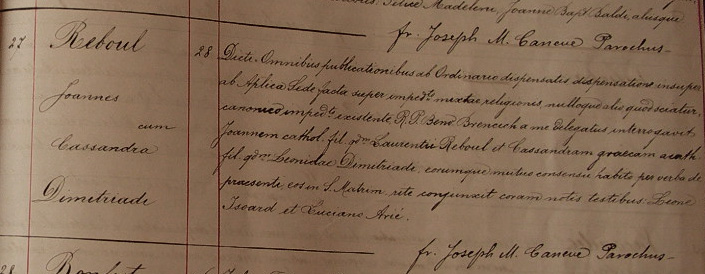 Madeleine, Joanne Bapt Balde, aliisque
fr. Joseph M. Caneve Parochus
27 Reboul
Joannes
cum
Cassandra
Dimitriade
28 Dicte. Omnibus publicationibus ab Ordinario dispensatis dispensatione insuper
ab Aplica Sede facta super impedto mixtae religionis, nulloque alio quod sciatur,
canonico impedto existente R. P. Bend Brencich a me delegatus interrogavit
Joannem cathol. fil. qdm Laurentii Reboul et Cassandram graecam
fil. qdm Leonidae Dimitriade, eorumque mutuo consensu habito per verba de
praesenti, eos in S. Matrim. rite conjunxit coram notis testibus: Leone
Isoard et Luciano Arié.
fr. Joseph M. Caneve Parochus
28